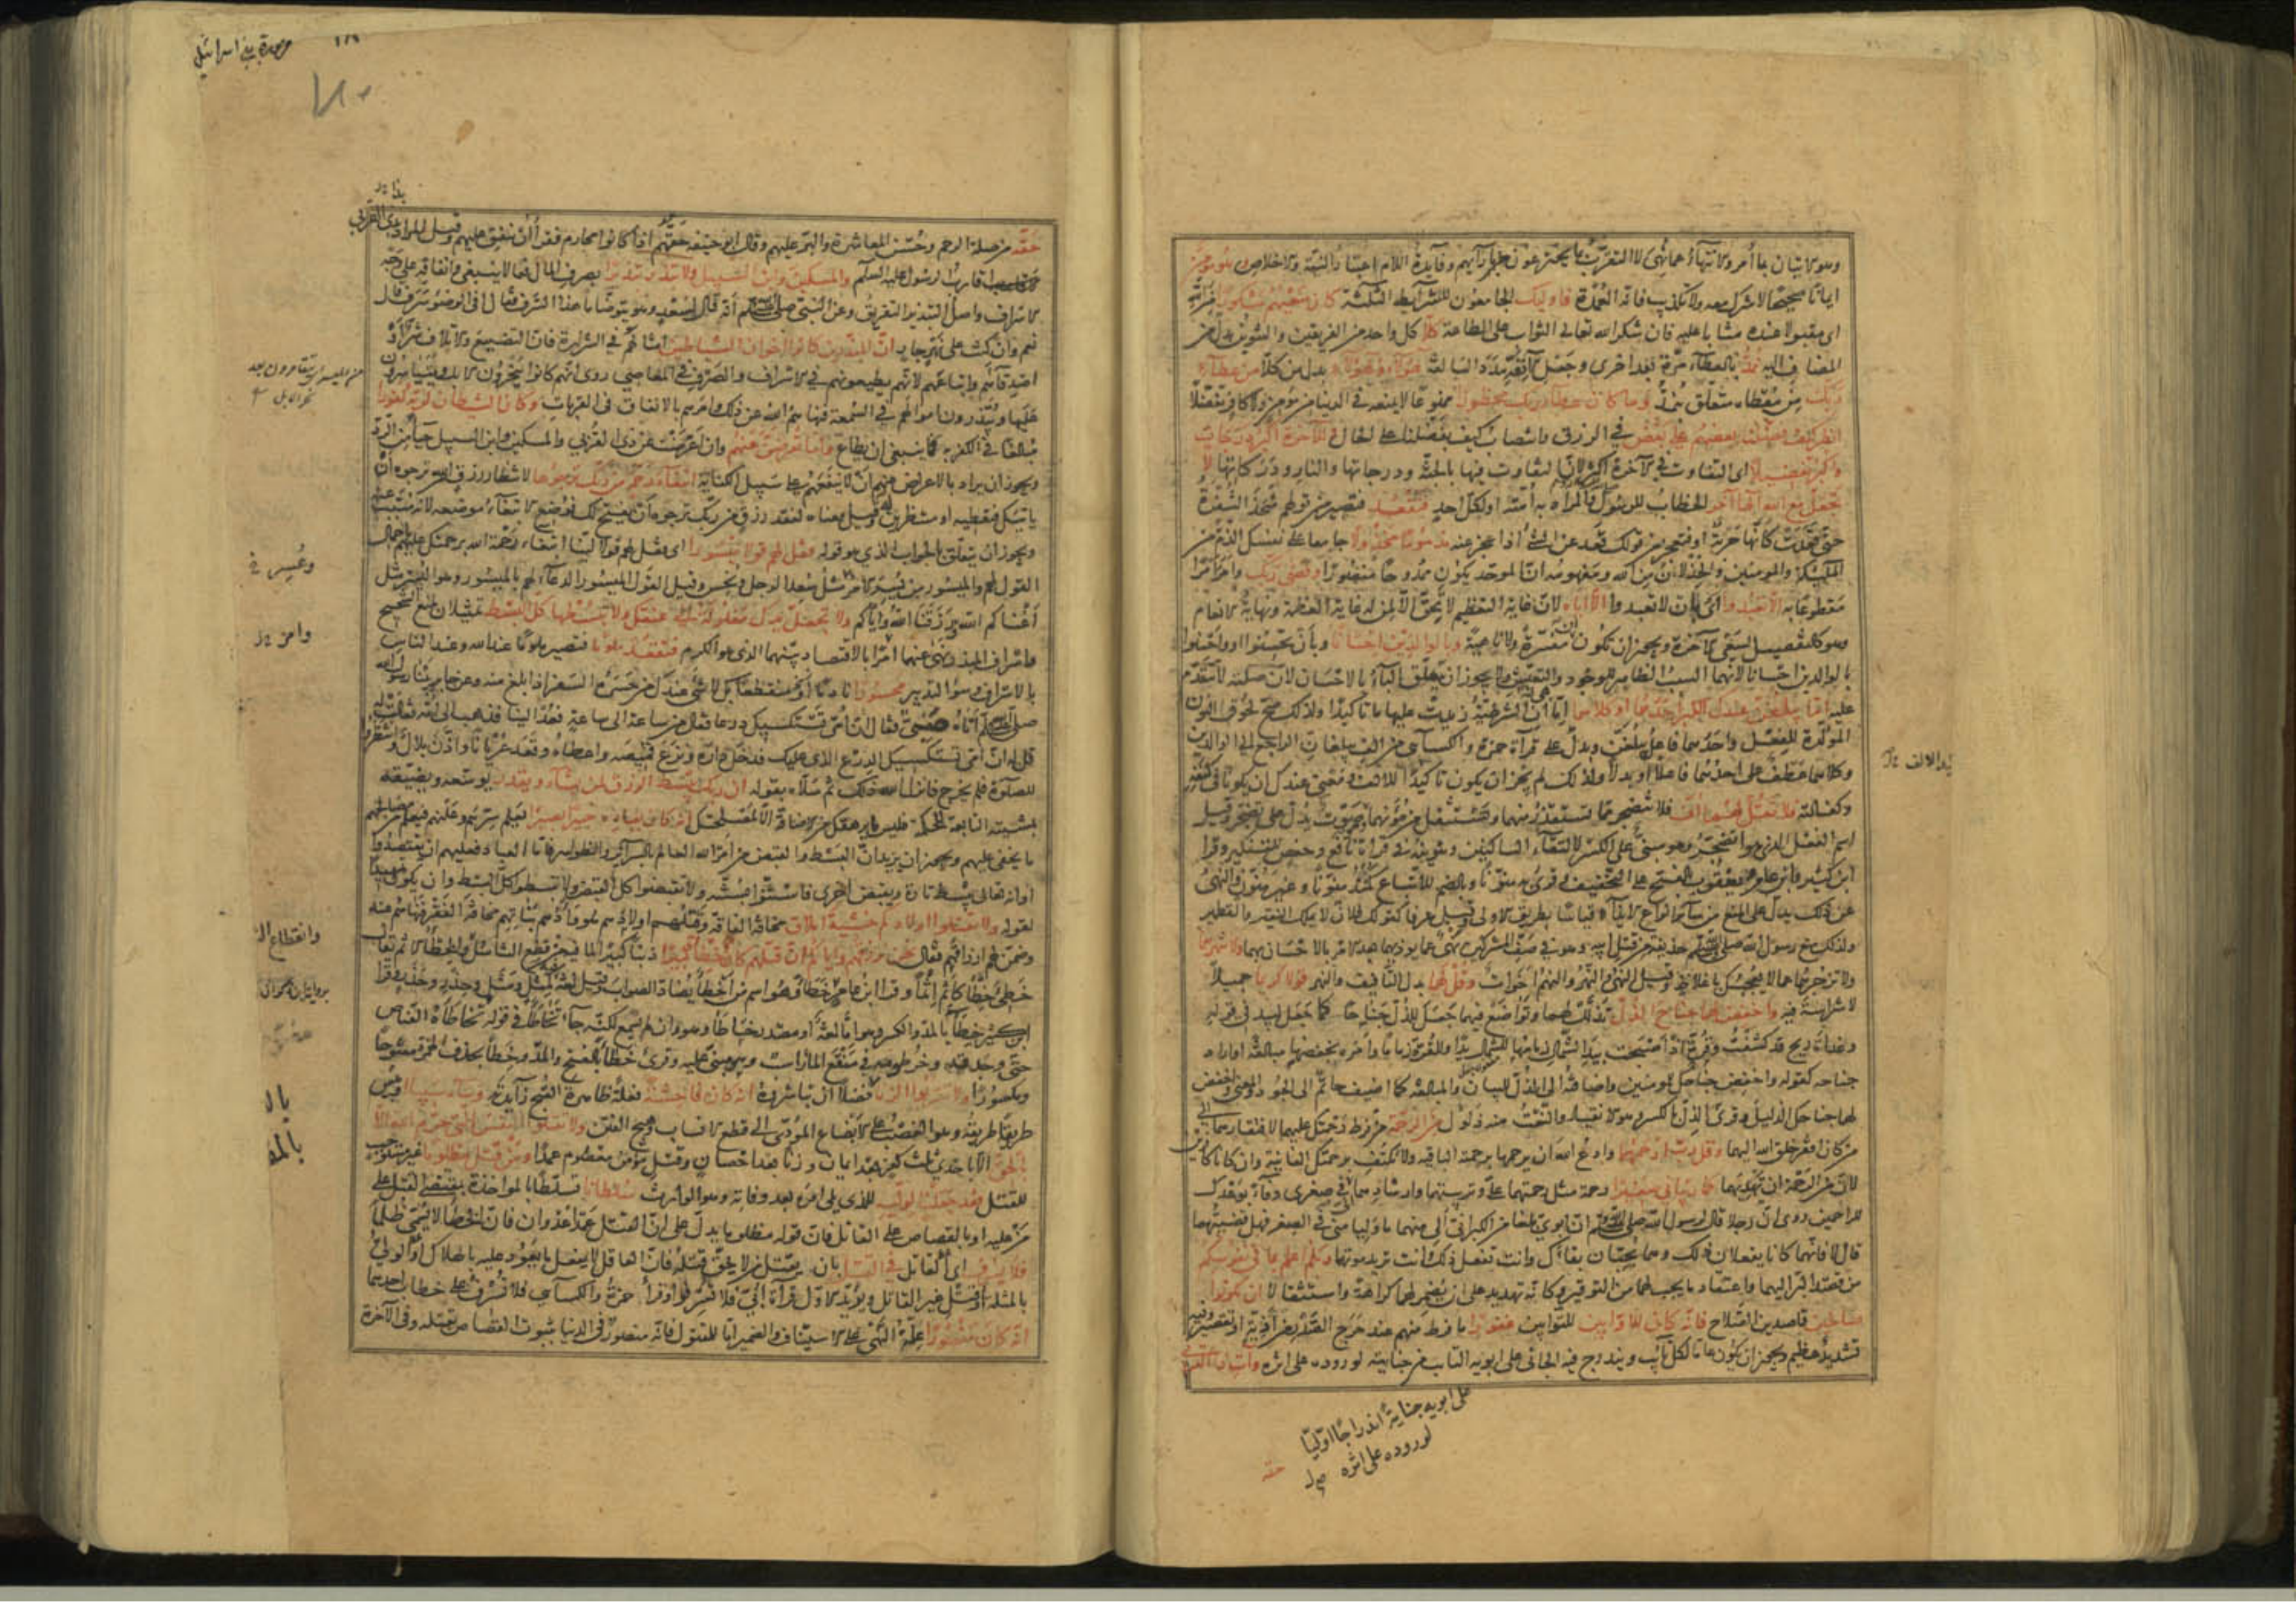 وهو الاتيان بما أمر والانتهاء عما نهى لا التقرب بما يخترعون بآرائهم وفايدة اللام اعتبار النية والاخلاص وهو مؤمن
ايمانا صحيحا لا شرك معه ولا تكذيب فانه العمدة فاوليك الجامعون للشرايط الثلثة كان سعيهم مشكورا من الله
اى مقبولا عنده مثابا عليه فان شكر الله تعالى الثواب على الطاعة كلا كل واحد من الفريقين والتنوين بدل من
المضاف اليه نمد بالعطاء مرة بعد اخرى ونجعل آنفه مدد السالفه هؤلاء وهؤلاء بدل من كلا من عطاء
ربك من معطاه متعلق بنمد وما كان عطاء ربك محظورا ممنوعا لا يمنعه فى الدنيا من مؤمن ولا كافر تفضلا
انظر كيف فضلنا بعضهم على بعض في الرزق وانتصاب كيف بفضلنا على الحال وللآخرة اكبر درجات
واكبر تفضيلا اى التفاوت في الآخرة اكبر لان التفاوت فيها بالجنة ودرجاتها والنار ودركاتها لا
تجعل مع الله الها آخر الخطاب للرسول والمراد به أمته او لكل احد فتقعد فتصير من قولهم شحذ الشفرة
حتى قعدت كأنها حربة او فتعجز من قولك قعد عن الشئ اذا عجز عنه مذموما مخذولا جامعا على نفسك الذم من
الملئكة والمومنين والخذلان من الله ومفهومه ان الموحد يكون ممدوحا منصورا وقضى ربك وامر امرا
مقطوعا به الا تعبدوا اى بان لا تعبدوا الا اياه لان غاية التعظيم لا يحق الا لمن له غاية العظمة ونهاية الانعام
وهو كالتفصيل لسعى الآخرة ويجوز ان تكون ان مفسرة ولا ناهية وبالوالدين احسانا وبأن تحسنوا او واحسنوا
بالوالدين احسانا لانهما السبب الظاهر للوجود والتعيش ولا يجوز ان يتعلق الباء بالاحسان لان صلته لا تتقدم
عليه اما يبلغن عندك الكبر احدهما او كلاهما اما هى ان الشرطية زيدت عليها ما تاكيدا ولذلك صح لحوق النون
المؤكدة للفعل واحدهما فاعل يبلغن وبدل على قرآة حمزة والكسآى من الف يبلغان الراجع الى الوالدين
وكلاهما عطف على احدهما فاعلا او بدلا ولذلك لم يجز ان يكون تاكيدا للالف ومعنى عندك ان يكونا فى كنفك
وكفالته فلا تقل لهما اف فلا تتضجر مما تستقذر منهما وتستثقل من مؤنهما وهو صوت يدل على تضجر وقيل
اسم الفعل الذى هو اتضجر وهو مبنى على الكسر لالتقاء الساكنين وتنوينه فى قرآة نافع وحفص للتنكير وقرا
ابن كثير وابن عامر ويعقوب بالفتح على التخفيف وقرى به منونا وبالضم للاتباع كمنذ منونا وغير منون والنهى
عن ذلك يدل على المنع من سائر انواع الايذاء قياسا بطريق الاولى وقيل عرفا كقولك فلان لا يملك النقير والقطمير
ولذلك منع رسول الله صلى الله عليه وسلم حذيفة من قتل ابيه وهو فى صف المشركين نهى عما يؤذيهما بعد الامر بالاحسان بهما ولا تنهرهما
ولا تزجرهما عما لا يعجبك باغلاظ وقيل النهى والنهر والنهم اخوات وقل لهما بدل التأفيف والنهر قولا كريما جميلا
لا شراسة فيه واخفض لهما جناح الذل تذلل لهما وتواضع فيهما جعل للذل جناحا كما جعل لبيد فى قوله
وغداة ريح قد كشفت وقرة اذ اصبحت بيد الشمال زمامها للشمال يدا وللقرة زماما وامره بخفضهما مبالغة او اراد
جناحه كقوله واخفض جناحك للمومنين واضافته الى الذل للبيان والمبالغه كما اضيف حاتم الى الجود والمعنى واخفض
لهما جناحك الذليل وقرئ الذل بالكسر وهو الانقياد والنعت منه ذلول من الرحمة من فرط رحمتك عليهما لافتقارهما الى
من كان افقر خلق الله اليهما وقل رب ارحمهما وادع الله ان يرحمهما برحمته الباقيه ولا تكتف برحمتك الفانية وان كانا كافرين
لان من الرحمة ان يهديهما كما ربيانى صغيرا رحمة مثل رحمتهما على وتربيتهما وارشادهما لى فى صغرى وفاء بوعدك
للراحمين روى ان رجلا قال لرسول الله صلى الله عليه وسلم ان ابوى بلغا من الكبر انى ألى منهما ما وليا منى فى الصغر فهل قضيتهما
قال لا فانهما كانا يفعلان ذلك وهما يحبان بقاءك وانت تفعل ذلك وانت تريد موتهما ربكم اعلم بما فى نفوسكم
من قصد البر اليهما واعتقاد ما يجب لهما من التوقير وكانه تهديد على ان يضمر لهما كراهة واستثقالا ان تكونوا
صالحين قاصدين الصلاح فانه كان للاوابين للتوابين غفورا ما فرط منهم عند حرج الصدر من أذية او تقصير وفيه
تشديد عظيم ويجوز ان يكون عاما لكل تائب ويندرج فيه الجانى على ابويه التائب من جنايته لوروده على اثره وآت ذا القربى
على ابويه جناية اندراجا اوليا
لوروده على اثره
حقه
سورة بنى اسرائيل
حقه من صلة الرحم وحسن المعاشرة والبر عليهم وقال ابو حنيفه حقهم اذا كانوا محارم فقرا ان ينفق عليهم وقيل المراد بذى القربى
اقارب الرسول عليه السلم والمسكين وابن السبيل ولا تبذر تبذيرا بصرف المال فيما لا ينبغى وانفاقه على وجه
الاسراف واصل التبذير التفريق وعن النبى صلى الله عليه وسلم أنه قال لسعد وهو يتوضأ ما هذا السرف فقال أفى الوضوء سرف قال
نعم وان كنت على نهر جار ان المبذرين كانوا اخوان الشياطين امثالهم في الشرارة فان التضييع والاتلاف شر او
اصدقآءهم واتباعهم لانهم يطيعونهم في الاسراف والصرف في المعاصي روى انهم كانوا ينحرون الابل ويتياسرون
عليها ويبذرون اموالهم في السمعة فنهاهم الله عن ذلك وامرهم بالانفاق فى القربات وكان الشيطان لربه كفورا
مبالغا في الكفر به فما ينبغى ان يطاع واما تعرضن عنهم وان اعرضت عن ذى القربى والمسكين وابن السبيل حيآء من الرد
ويجوز ان يراد بالاعراض عنهم ان لا ينفعهم على سبيل الكناية ابتغاء رحمة من ربك ترجوها لانتظار رزق من الله ترجوه ان
ياتيك فتعطيه او منتظرين له وقيل معناه لفقد رزق من ربك ترجوه ان يفتح لك فوضع الابتغاء موضعه لانه مسبب عنه
ويجوز ان يتعلق بالجواب الذى هو قوله فقل لهم قولا ميسورا اى فقل لهم قولا لينا ابتغاء رحمة الله برحمتك عليهم باجمال
القول لهم والميسور من يسر الامر مثل سعد الرجل ونحس وقيل القول الميسور الدعآء لهم بالميسور وهو اليسر مثل
أغناكم الله ورزقنا الله واياكم ولا تجعل يدك مغلولة الى عنقك ولا تبسطها كل البسط تمثيلان لمنع الشحيح
واسراف المبذر نهى عنهما امرا بالاقتصاد بينهما الذى هو الكرم فتقعد ملوما فتصير ملوما عند الله وعند الناس
بالاسراف وسوء التدبير محسورا نادما او منقطعا بك لا شئ عندك من حسره السفر اذا بلغ منه وعن جابر بينا رسول الله
صلى الله عليه وسلم أتاه صبى فقال ان امى تستكسيك درعا فقال من ساعة الى ساعة فعد الينا فذهب الى امه فقالت له
قل له ان امى تستكسيك الدرع الذى عليك فدخل داره ونزع قميصه واعطاه وقعد عريانا واذن بلال وانتظروا
للصلوة فلم يخرج فانزل الله ذلك ثم سلاه بقوله ان ربك يبسط الرزق لمن يشاء ويقدر يوسعه ويضيقه
بمشيته التابعة للحكمة فليس ما يرهقك من الاضاقة الا لمصلحتك انه كان بعباده خبيرا بصيرا يعلم سرهم وعلنهم فيعلم من مصالحهم
ما يخفى عليهم ويجوز ان يريد ان البسط والقبض من امر الله العالم بالسرائر والظواهر فاما العباد فعليهم ان يقتصدوا
او انه تعالى يبسط تارة ويقبض اخرى فاستنوا بسنته ولا تقبضوا كل القبض ولا تبسطوا كل البسط وان يكون تمهيدا
لقوله ولا تقتلوا اولادكم خشية املاق مخافة الفاقه وقتلهم اولادهم هو وأدهم بناتهم مخافة الفقر فنهاهم عنه
وضمن لهم ارزاقهم فقال نحن نرزقهم واياكم ان قتلهم كان خطأ كبيرا ذنبا كبيرا لما فيه من قطع التناسل والخطأ الاثم يقال
خطئ خطأ كأثم اثما وقرا ابن عامر خطأ وهو اسم من اخطأ يضاد الصواب وقيل لغة فيه كمثل ومثل وحذر وحذر وقرا
ابن كثير خطآء بالمد والكسر وهو اما لغة أو مصدر خاطأ وهو وان لم يسمع لكنه جآء تخاطأ فى قوله تخاطأه القناص
حتى وجدته وخرطومه في منقع المآء راسب وهو مبنى عليه وقرئ خطآء بالفتح والمد وخطا بحذف الهمزة مفتوحا
ومكسورا ولا تقربوا الزنا فضلا ان تباشروه انه كان فاحشة فعلة ظاهرة القبح زآيدته وساء سبيلا وبئس
طريقا طريقه وهو الغصب على الابضاع المؤدى الى قطع الانساب وهيج الفتن ولا تقتلوا النفس التى حرم الله الا
بالحق الا باحدى ثلث كفر بعد ايمان وزنا بعد احصان وقتل مؤمن معصوم عمدا ومن قتل مظلوما غير مستوجب
للقتل فقد جعلنا لوليه للذى يلى امره بعد وفاته وهو الوارث سلطانا تسلطا بالمواخذة بمقتضى القتل على
من عليه او بالقصاص على القاتل فان قوله مظلوما يدل على ان القتل عمدا عدوان فان الخطأ لا يسمى ظلما
فلا يسرف اى القاتل فى القتل بان يقتل من لا يحق قتله فان العاقل لا يفعل ما يعود عليه بالهلاك او الولى
بالمثله او قتل غير القاتل ويؤيد الاول قرآة أبى فلا تسرفوا وقرأ حمزة والكسآى فلا تسرف على خطاب احدهما
انه كان منصورا علة النهى على الاستيناف والضمير اما للمقتول فانه منصور فى الدنيا بثبوت القصاص بقتله وفى الآخرة